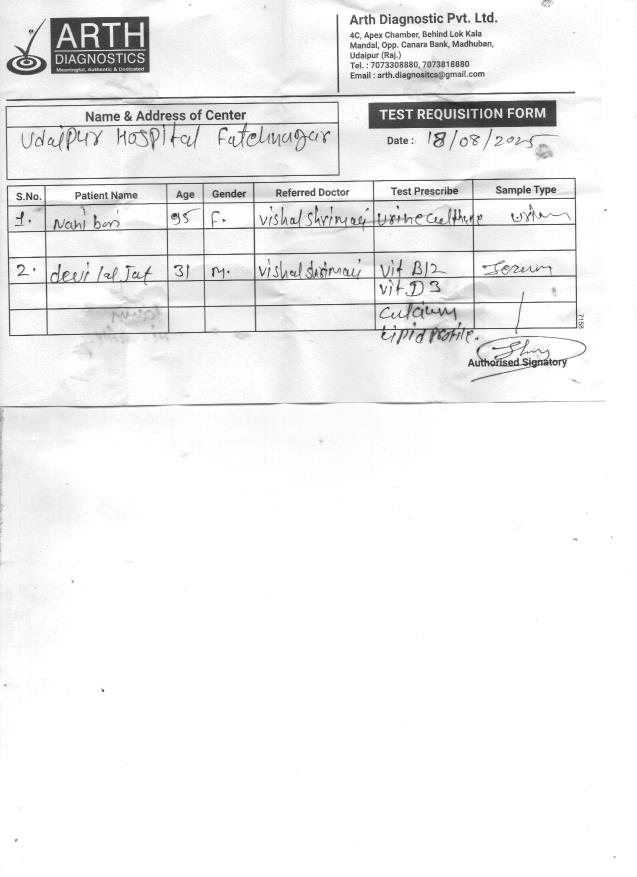 ARTH
DIAGNOSTICS
Meaningful, Authentic & Dedicated
Arth Diagnostic Pvt. Ltd.
4C, Apex Chamber, Behind Lok Kala
Mandal, Opp. Canara Bank, Madhuban,
Udaipur (Raj.)
Tel. : 7073308880, 7073818880
Email : arth.diagnositcs@gmail.com
Name & Address of Center
Udaipur Hospital Fatehnagar
TEST REQUISITION FORM
Date : 18/08/2025
S.No. Patient Name Age Gender Referred Doctor Test Prescribe Sample Type
1. Nani bai 95 F. vishal shrimali urine culture urine
2. devi lal Jat 31 M. vishal shrimali vit B12 Serum
vit D3
calcium
Lipid profile.
7158
Authorised Signatory